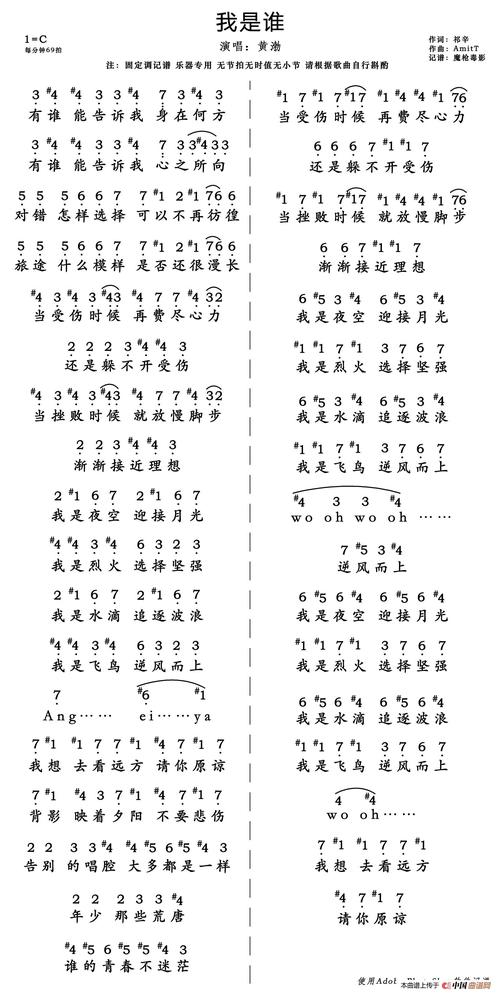 我是谁
1=C
每分钟69拍
演唱：黄渤
作词：祁辛
作曲：AmitT
记谱：魔枪毒影
注：固定调记谱 乐器专用 无节拍无时值无小节 请根据歌曲自行斟酌
3 #4 #4 3 #4 3 7 3 #4 3
有谁 能告诉我 身在何方
3 #4 #4 3 #4 3 7 3 3#4 33
有谁 能告诉我 心之所向
5 5 5 6 6 7 7 #1 2 #1 76 6
对错 怎样选择 可以不再彷徨
5 5 5 6 6 7 7 #1 2 #1 76 6
旅途 什么模样 是否还很漫长
#4 3 #4 3 #43 #4 7 7 #4 32
当受伤时候 再费尽心力
2 2 2 3 #4 #4 3
还是躲不开受伤
#4 3 #4 3 #43 #4 7 7 #4 32
当挫败时候 就放慢脚步
2 2 3 #4 #4 3
渐渐接近理想
2 #1 6 7 2 #1 6 7
我是夜空 迎接月光
#4 #4 3 #4 6 3 2 3
我是烈火 选择坚强
2 #1 6 7 2 #1 6 7
我是水滴 追逐波浪
#4 #4 3 #4 6 3 2 3
我是飞鸟 逆风而上
7 #6 #1
Ang…… ei……ya
7 #1 #1 7 7 #1 #4 7 #1 7
我想 去看远方 请你原谅
7 #1 #4 3 7 #1 #4 7 #1 7
背影 映着夕阳 不要悲伤
2 2 3 3 #4 #4 #5 6 #5 #4 3
告别 的唱腔 大多都是一样
2 2 2 3 3 #4
年少 那些荒唐
#4 #5 6 #5 #4 3 #4
谁的青春不迷茫
#1 7 #1 7 #17 #1 7 7 #1 76
当受伤时候 再费尽心力
6 6 6 7 #1 #1 7
还是躲不开受伤
#1 7 #1 7 #17 #1 #4 #4 #1 76
当挫败时候 就放慢脚步
6 6 7 #1 #1 7
渐渐接近理想
6 #5 3 #4 6 #5 3 #4
我是夜空 迎接月光
#1 #1 7 #1 3 7 6 7
我是烈火 选择坚强
6 #5 3 #4 6 #5 3 #4
我是水滴 追逐波浪
#1 #1 7 #1 3 7 6 7
我是飞鸟 逆风而上
#4 3 3 #4
wo oh wo oh ……
7 #5 3 #4
逆风而上
6 #5 6 #4 6 #5 6 #4
我是夜空 迎接月光
#1 #1 7 #1 3 7 6 7
我是烈火 选择坚强
6 #5 6 #4 6 #5 6 #4
我是水滴 追逐波浪
#1 #1 7 #1 3 7 6 7
我是飞鸟 逆风而上
4 #4
wo oh……
7 #1 #1 7 7 #1
我想 去看远方
#4 7 #1 7
请你原谅
本曲谱上传于 中国曲谱网